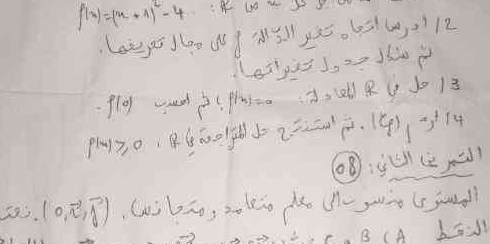 f(x)=(x+1)²-4 : R من x كل
2/ ادرس اتجاه تغير الدالة f على مجال تعريفها.
ثم شكل جدول تغيراتها.
3/ حل في R المعادلة: f(x)=0 ، ثم احسب f(0).
4/ ارسم (Cf). ثم استنتج حل المتراجحة في R ، f(x)≥0
التمرين الثاني: (08)
المستوي منسوب الى معلم متعامد ومتجانس (0,i,j).
النقط A ( B